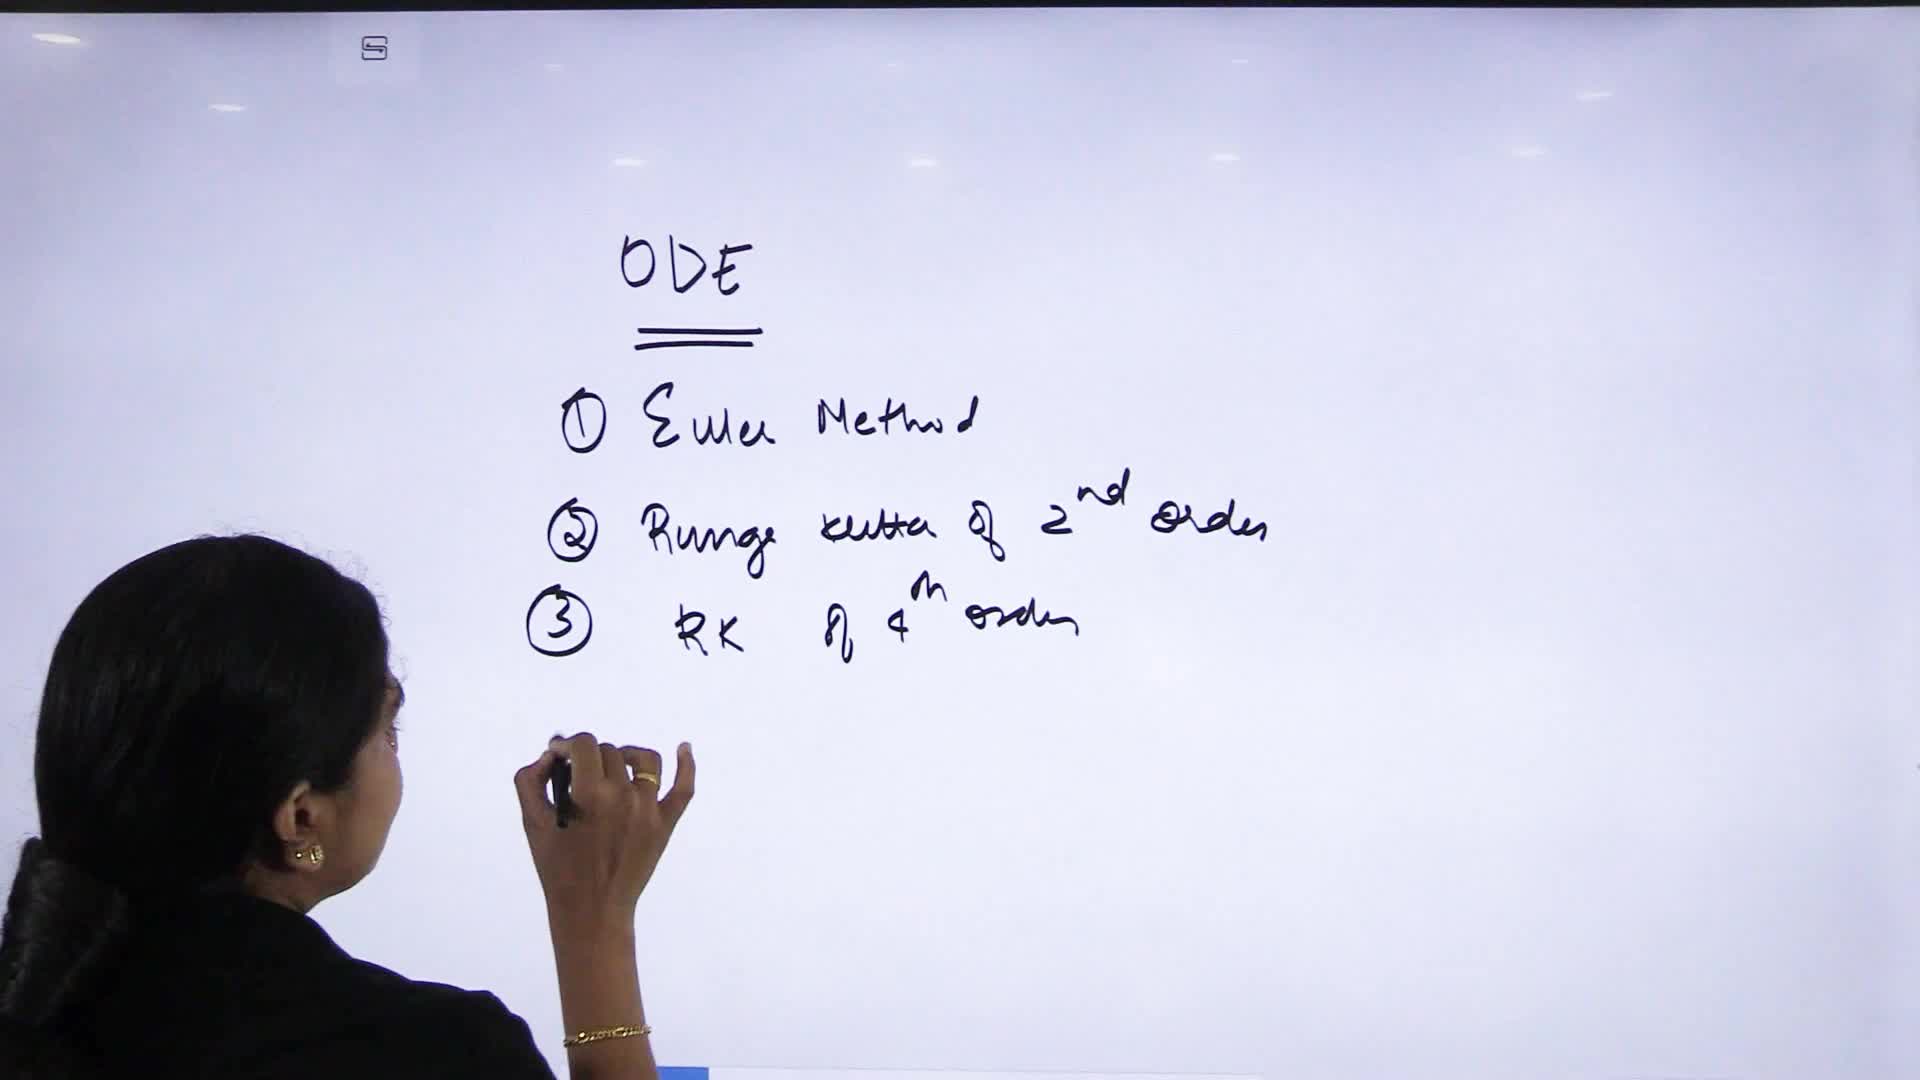 ODE
① Euler Method
② Runge kutta of 2nd order
③ RK of 4th order